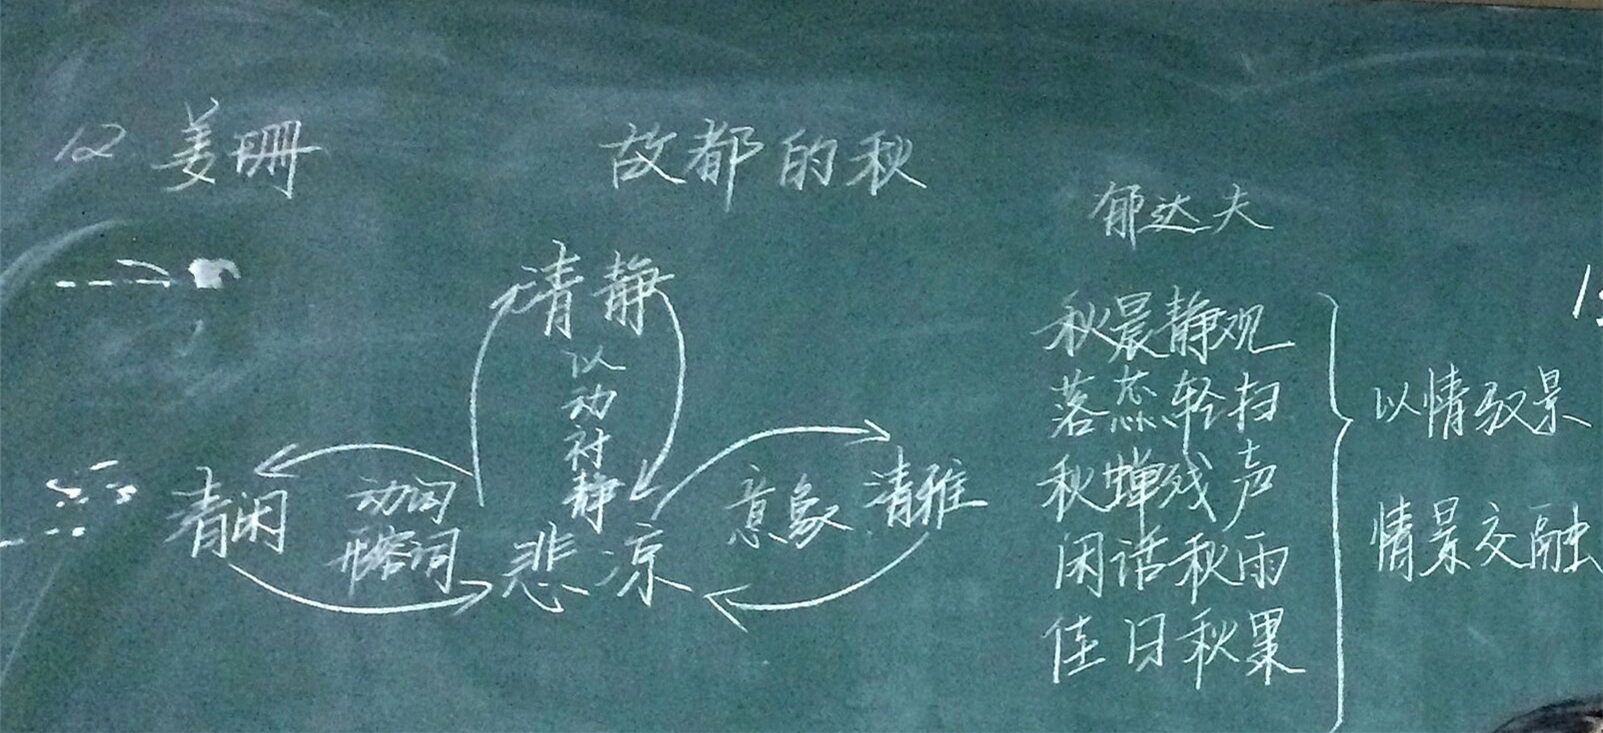 12 姜珊
故都的秋
郁达夫
清静
以动衬静
清闲
动词
形容词
悲凉
意象
清雅
秋晨静观
落蕊轻扫
秋蝉残声
闲话秋雨
佳日秋果
以情驭景
情景交融